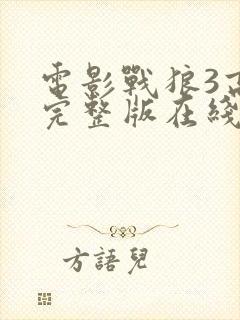 電影戰狼3高
完整版在綫
方語兒